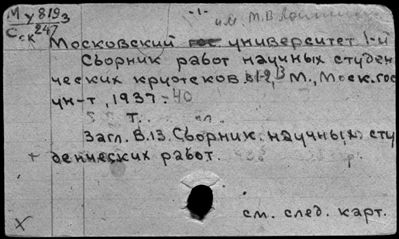 М у 819з
им. М.В.
Сск 247
Московский гос университет 1-й
Сборник работ научных студен-
ческих кружков в1-2, В М., Моск. гос.
ун-т, 1937-40
т.
Загл. В.13. Сборник научных сту
+ денческих работ.
X
см. след. карт.